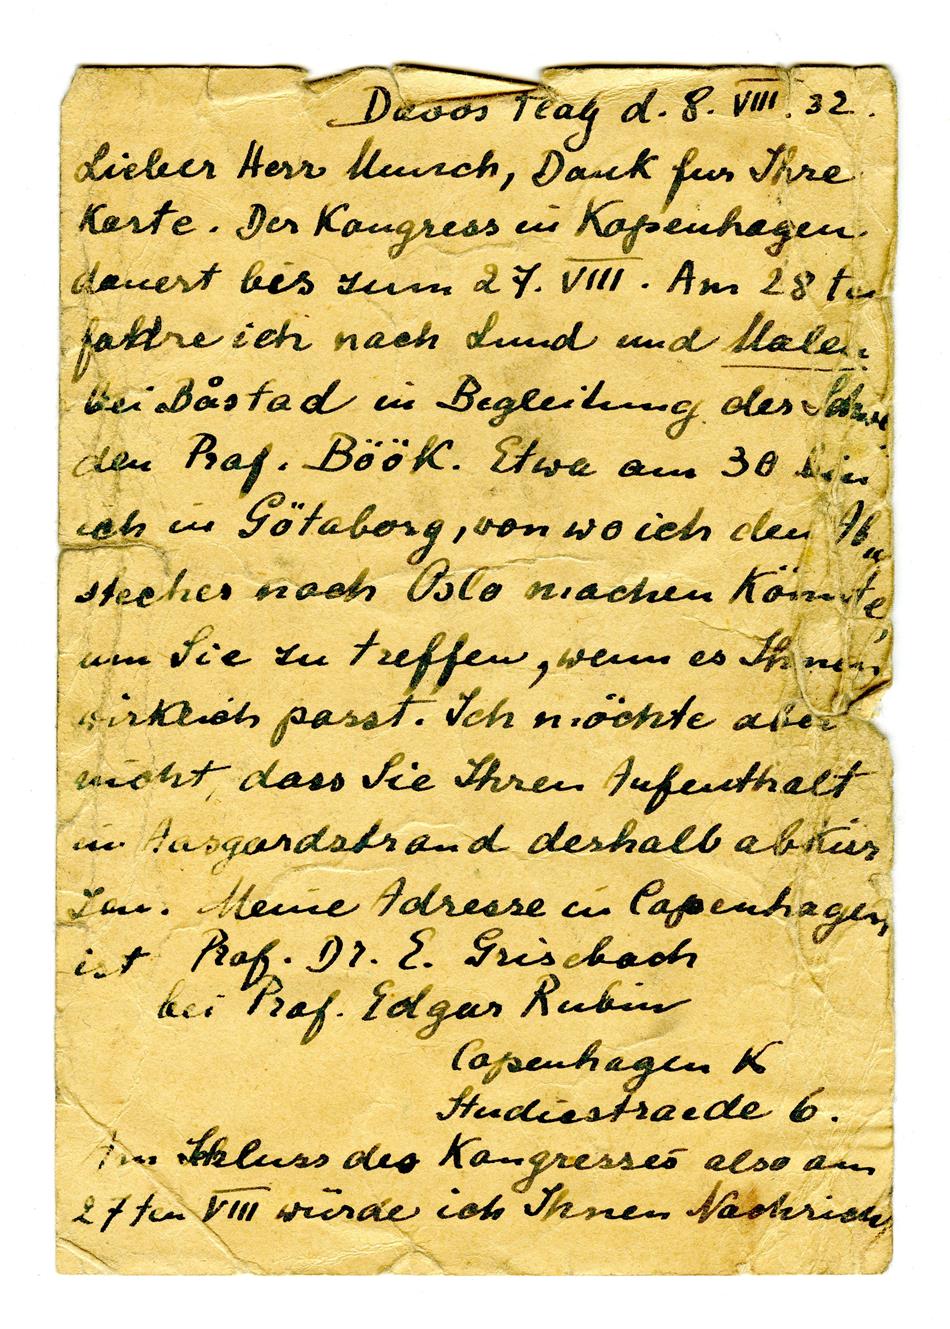 Davos Platz d. 8. VIII. 32.
Lieber Herr Munch, Dank für Ihre
Karte. Der Kongress in Kopenhagen
dauert bis zum 27. VIII. Am 28ten
fahre ich nach Lund und Malen
bei Båstad in Begleitung des Schwe
den Prof. Böök. Etwa am 30 bin
ich in Götaborg, von wo ich den Ab
stecher nach Oslo machen könnte,
um Sie zu treffen, wenn es Ihnen
wirklich passt. Ich möchte aber
nicht, dass Sie Ihren Aufenthalt
in Aasgardstrand deshalb abkür
zen. Meine Adresse in Copenhagen
ist Prof. Dr. E. Grisebach
bei Prof. Edgar Rubin
Copenhagen K
Studiestraede 6.
Am Schluss des Kongresses also am
27ten VIII würde ich Ihnen Nachricht